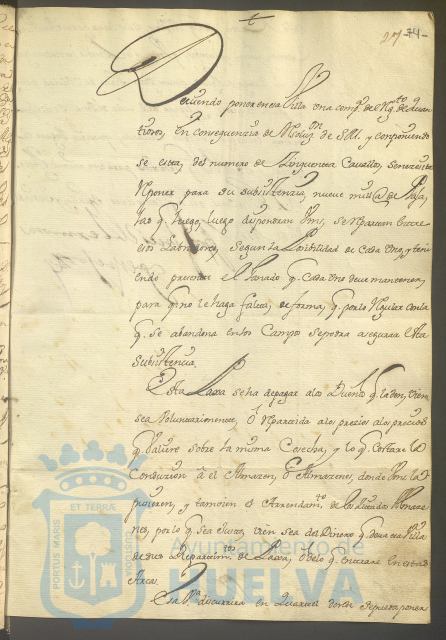 27 -74-
Deviendo poner en esta Villa una comp.ª del Reg.to de
en conseguenzia de Resoluz.on de S.M. y componiendo
se esta, del numero de Zinquenta Cavallos, se nezesita
poner para su subsistenzia, nueve mill @ de Paja,
las q. luego, luego dispondran Vms. se repartan entre
esos Labradores, segun la posibilidad de cada Uno, y teni
endo presente el Ganado q. cada Uno deve mantener,
para q. no le haga falta, de forma, q. por lo
q. se abandona en los Campos se podra asegurar esta
Subsistencia
Esta Paxa se ha de pagar a los Dueños q. la den, vien
sea Voluntariamente, ô repartida a los prezios
q. valiere sobre la misma Cosecha, y lo q. costare la
Conduzion â el Almazen, ô Almazenes, donde Vms. la
pusieren, y tamvien el Arrendam.to de los citados Almaze
nes, por lo q. sea vien sea del Dinero q. deva esa Villa
de su Repartim.to de Paxa, ô de lo q. entrare en
Arcas.
Esa P.ª en Quartel donde se pueda poner
PORTUS MARIS ET TERRÆ CUSTODIA
Ayuntamiento de
HUELVA